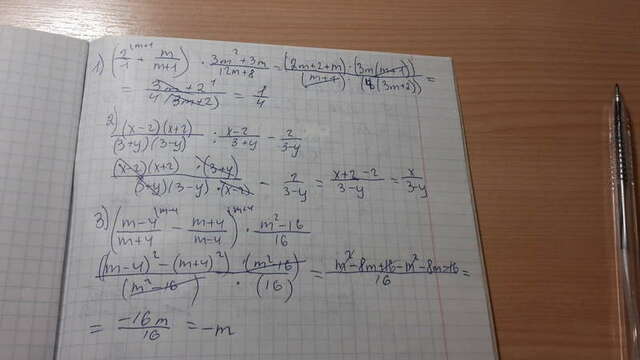 1) (2/1 ^(m+1) + m/(m+1)) · (3m²+3m)/(12m+8) = ((2m+2+m) · (3m(m+1)))/((m+1) (4(3m+2))) =
= (3m+2 ¹)/(4(3m+2)) = 1/4
2)
((x-2)(x+2))/((3+y)(3-y)) : (x-2)/(3+y) - 2/(3-y)
((x-2)(x+2) · (3+y))/((3+y)(3-y) · (x-2)) - 2/(3-y) = (x+2-2)/(3-y) = x/(3-y)
3) ((m-4)/(m+4) ^(m-4) - (m+4)/(m-4) ^(m+4)) · (m²-16)/16
((m-4)² - (m+4)²) · (m²-16)/((m²-16) · (16)) = (m²-8m+16-m²-8m-16)/16 =
= (-16m)/16 = -m